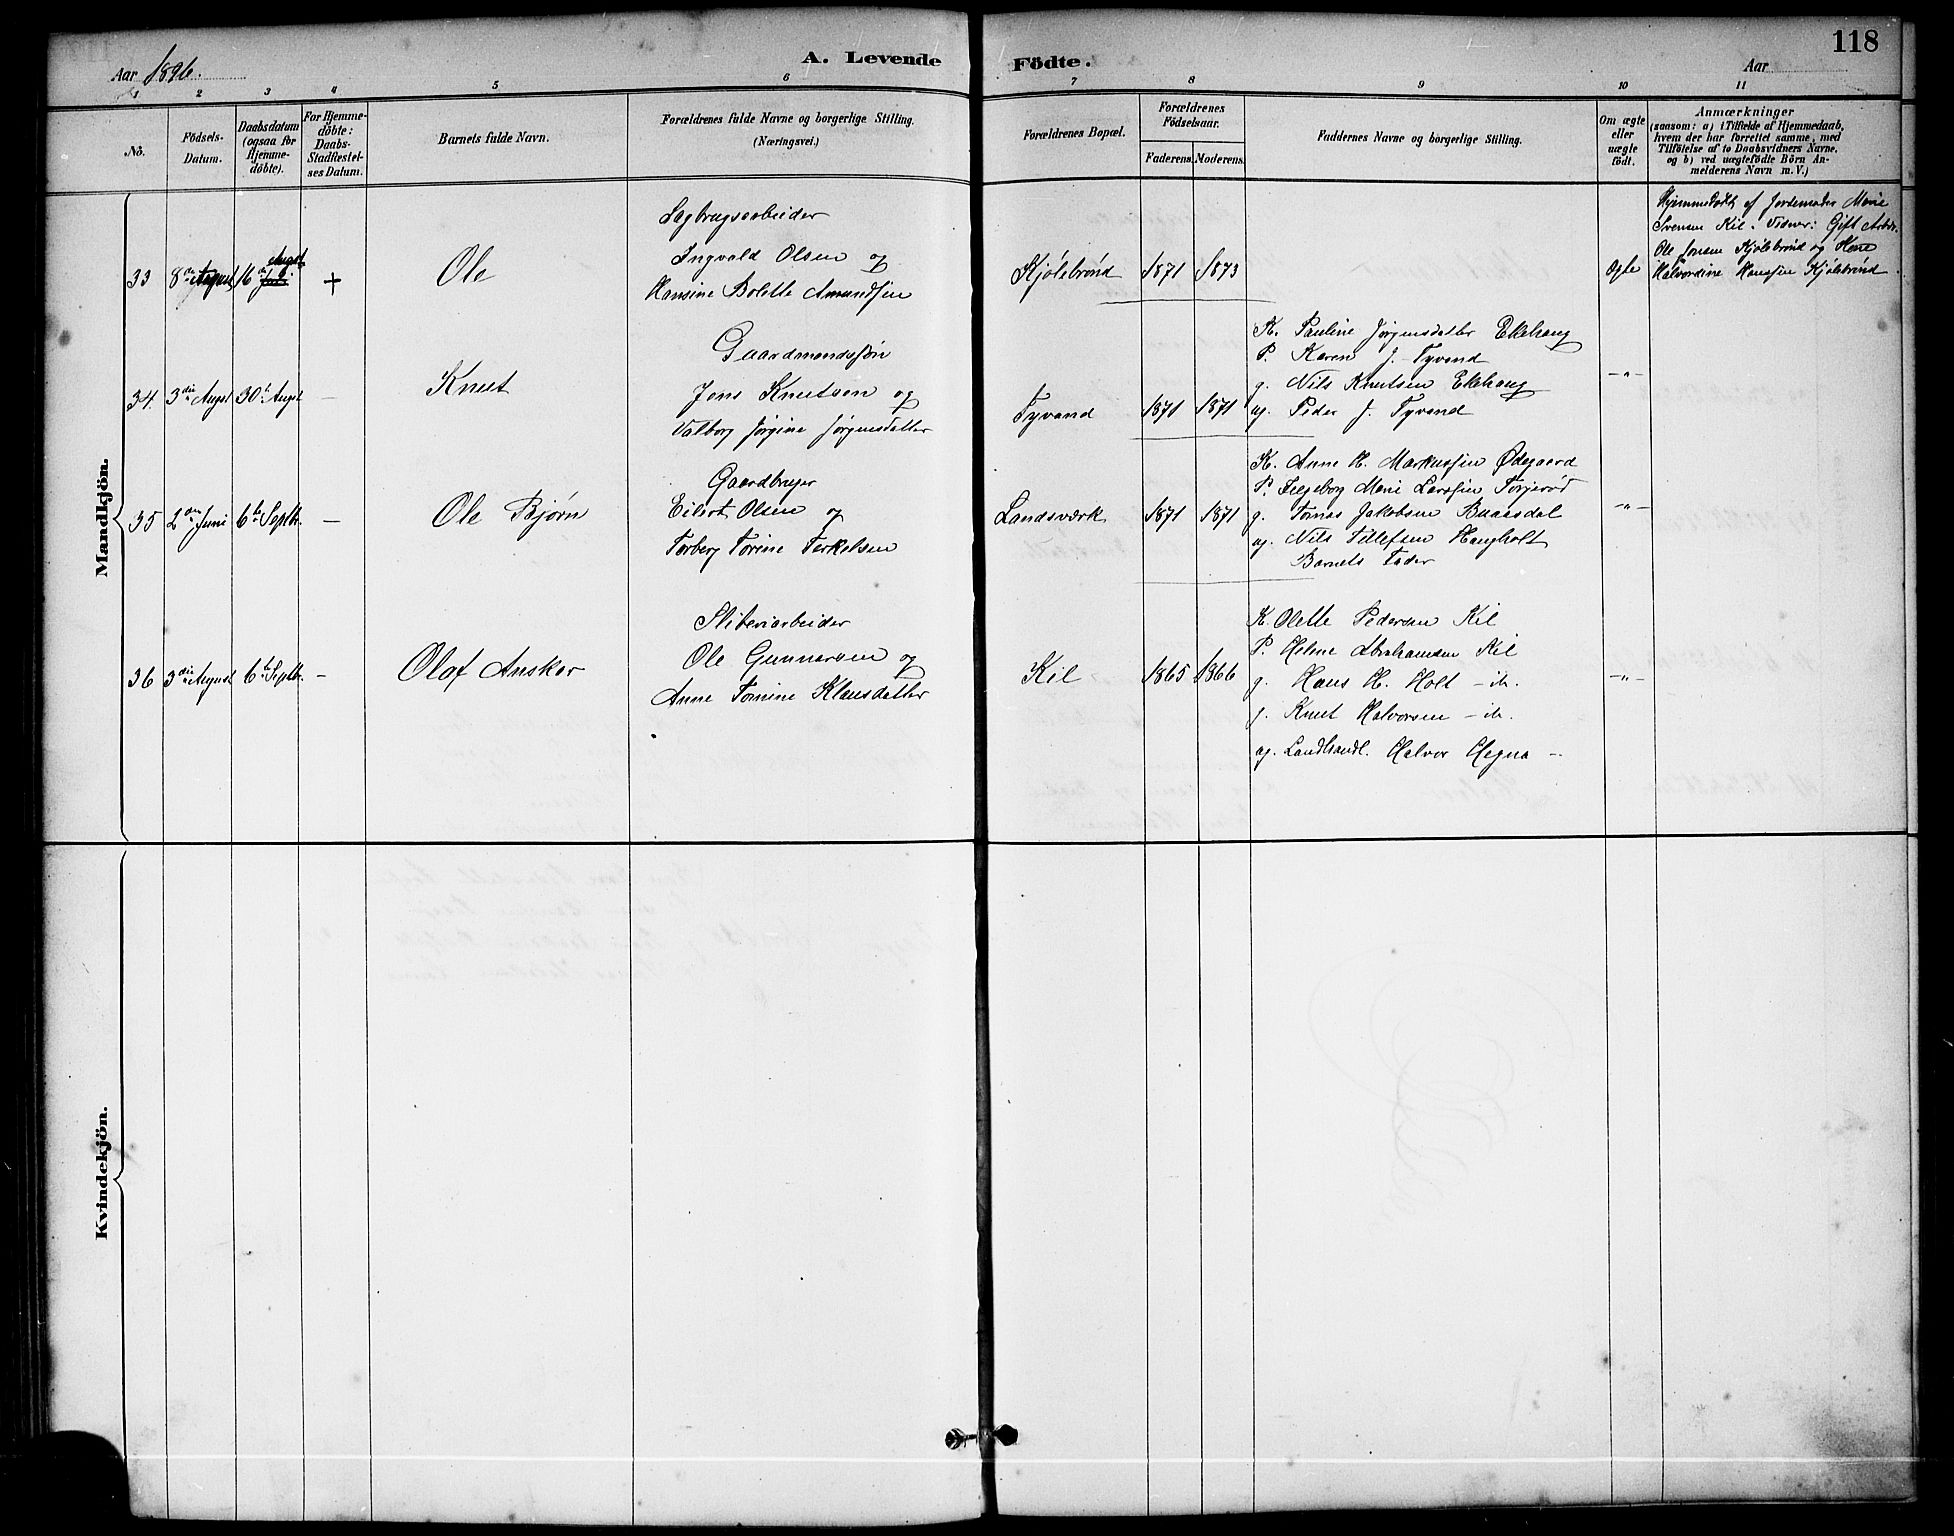 Aar 1896.
A. Levende Födte.
Aar
118
1 2 3 4 5 6 7 8 9 10 11
No.
Födsels-Datum.
Daabsdatum (ogsaa for Hjemme-döbte).
For Hjemme-döbte: Daabs-Stadfæstel-ses Datum.
Barnets fulde Navn.
Forældrenes fulde Navne og borgerlige Stilling. (Næringsvei.)
Forældrenes Bopæl.
Forældrenes Födselsaar.
Faderens. Moderens.
Faddernes Navne og borgerlige Stilling.
Om ægte eller uægte födt.
Anmærkninger
(saasom: a) i Tilfælde af Hjemmedaab,
hvem der har forrettet samme, med
Tilföielse af to Daabsvidners Navne,
og b) ved uægtefödte Börn An-
melderens Navn m. V.)
Mandkjön.
33 8de August 16de Augst +
Ole
Sagbrugsarbeider
Ingvald Olsen og
Hansine Bolette Amundsen
Kjølebrønd 1871 1873
Ægte
Hjemmedøbt af Jordemoder Marie
Svensen Kil. Vidner: Gift Arbr.
Ole Jensen Kjølebrønd og Kone
Halvordine Hanssen Kjølebrønd.
34. 3die Augst 30te Augst —
Knut
Gaardmandssøn
Jens Knutsen og
Valborg Jørgine Jørgensdatter
Tyvand 1871 1871
K. Pauline Jørgensdatter Ekehaug
P. Karen J. Tyvand
g. Nils Knutsen Ekehaug
ug. Peder J. Tyvand
—"—
35 2den Juni 6te Septbr. —
Ole Bjørn
Gaardbruger
Eilert Olsen og
Torberg Torine Terkelsen
Landsværk 1871 1871
K. Anne H. Markussen Ødegaard
P. Ingeborg Marie Larssen Torjerød
g. Tomas Jakobsen Buaasdal
ug. Nils Tellefsen Haugholt
Barnets Fader
—"—
36 3die August 6te Septbr. —
Olaf Anskar
Sliberiarbeider
Ole Gunnarsen og
Anne Tomine Klausdatter
Kil 1865 1866
K. Olette Pedersen Kil
P. Helene Abrahamsen Kil
g. Hans H. Holt — ib.
g. Knut Halvorsen — ib.
ug. Landhandl. Halvor Hegna —
—"—
Kvindekjön.